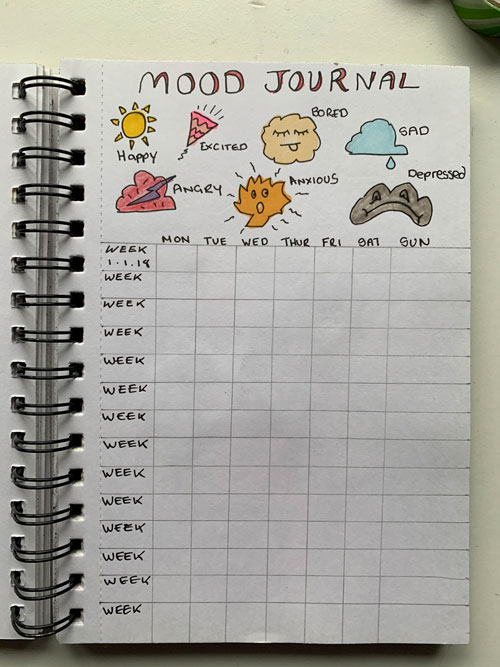 MOOD JOURNAL
Happy
EXCITED
BORED
SAD
ANGRY
ANXIOUS
Depressed
MON TUE WED THUR FRI SAT SUN
WEEK
1.1.18
WEEK
WEEK
WEEK
WEEK
WEEK
WEEK
WEEK
WEEK
WEEK
WEEK
WEEK
WEEK
WEEK